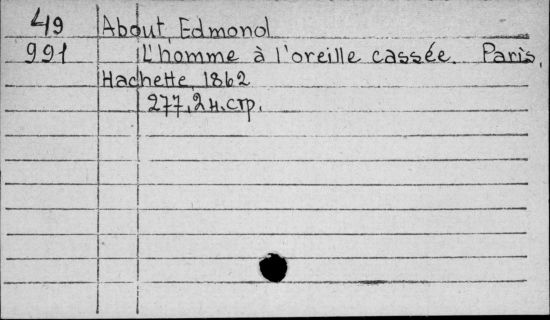 49 About, Edmond
991 L'homme à l'oreille cassée. Paris,
Hachette, 1862
277, 2 н. стр.